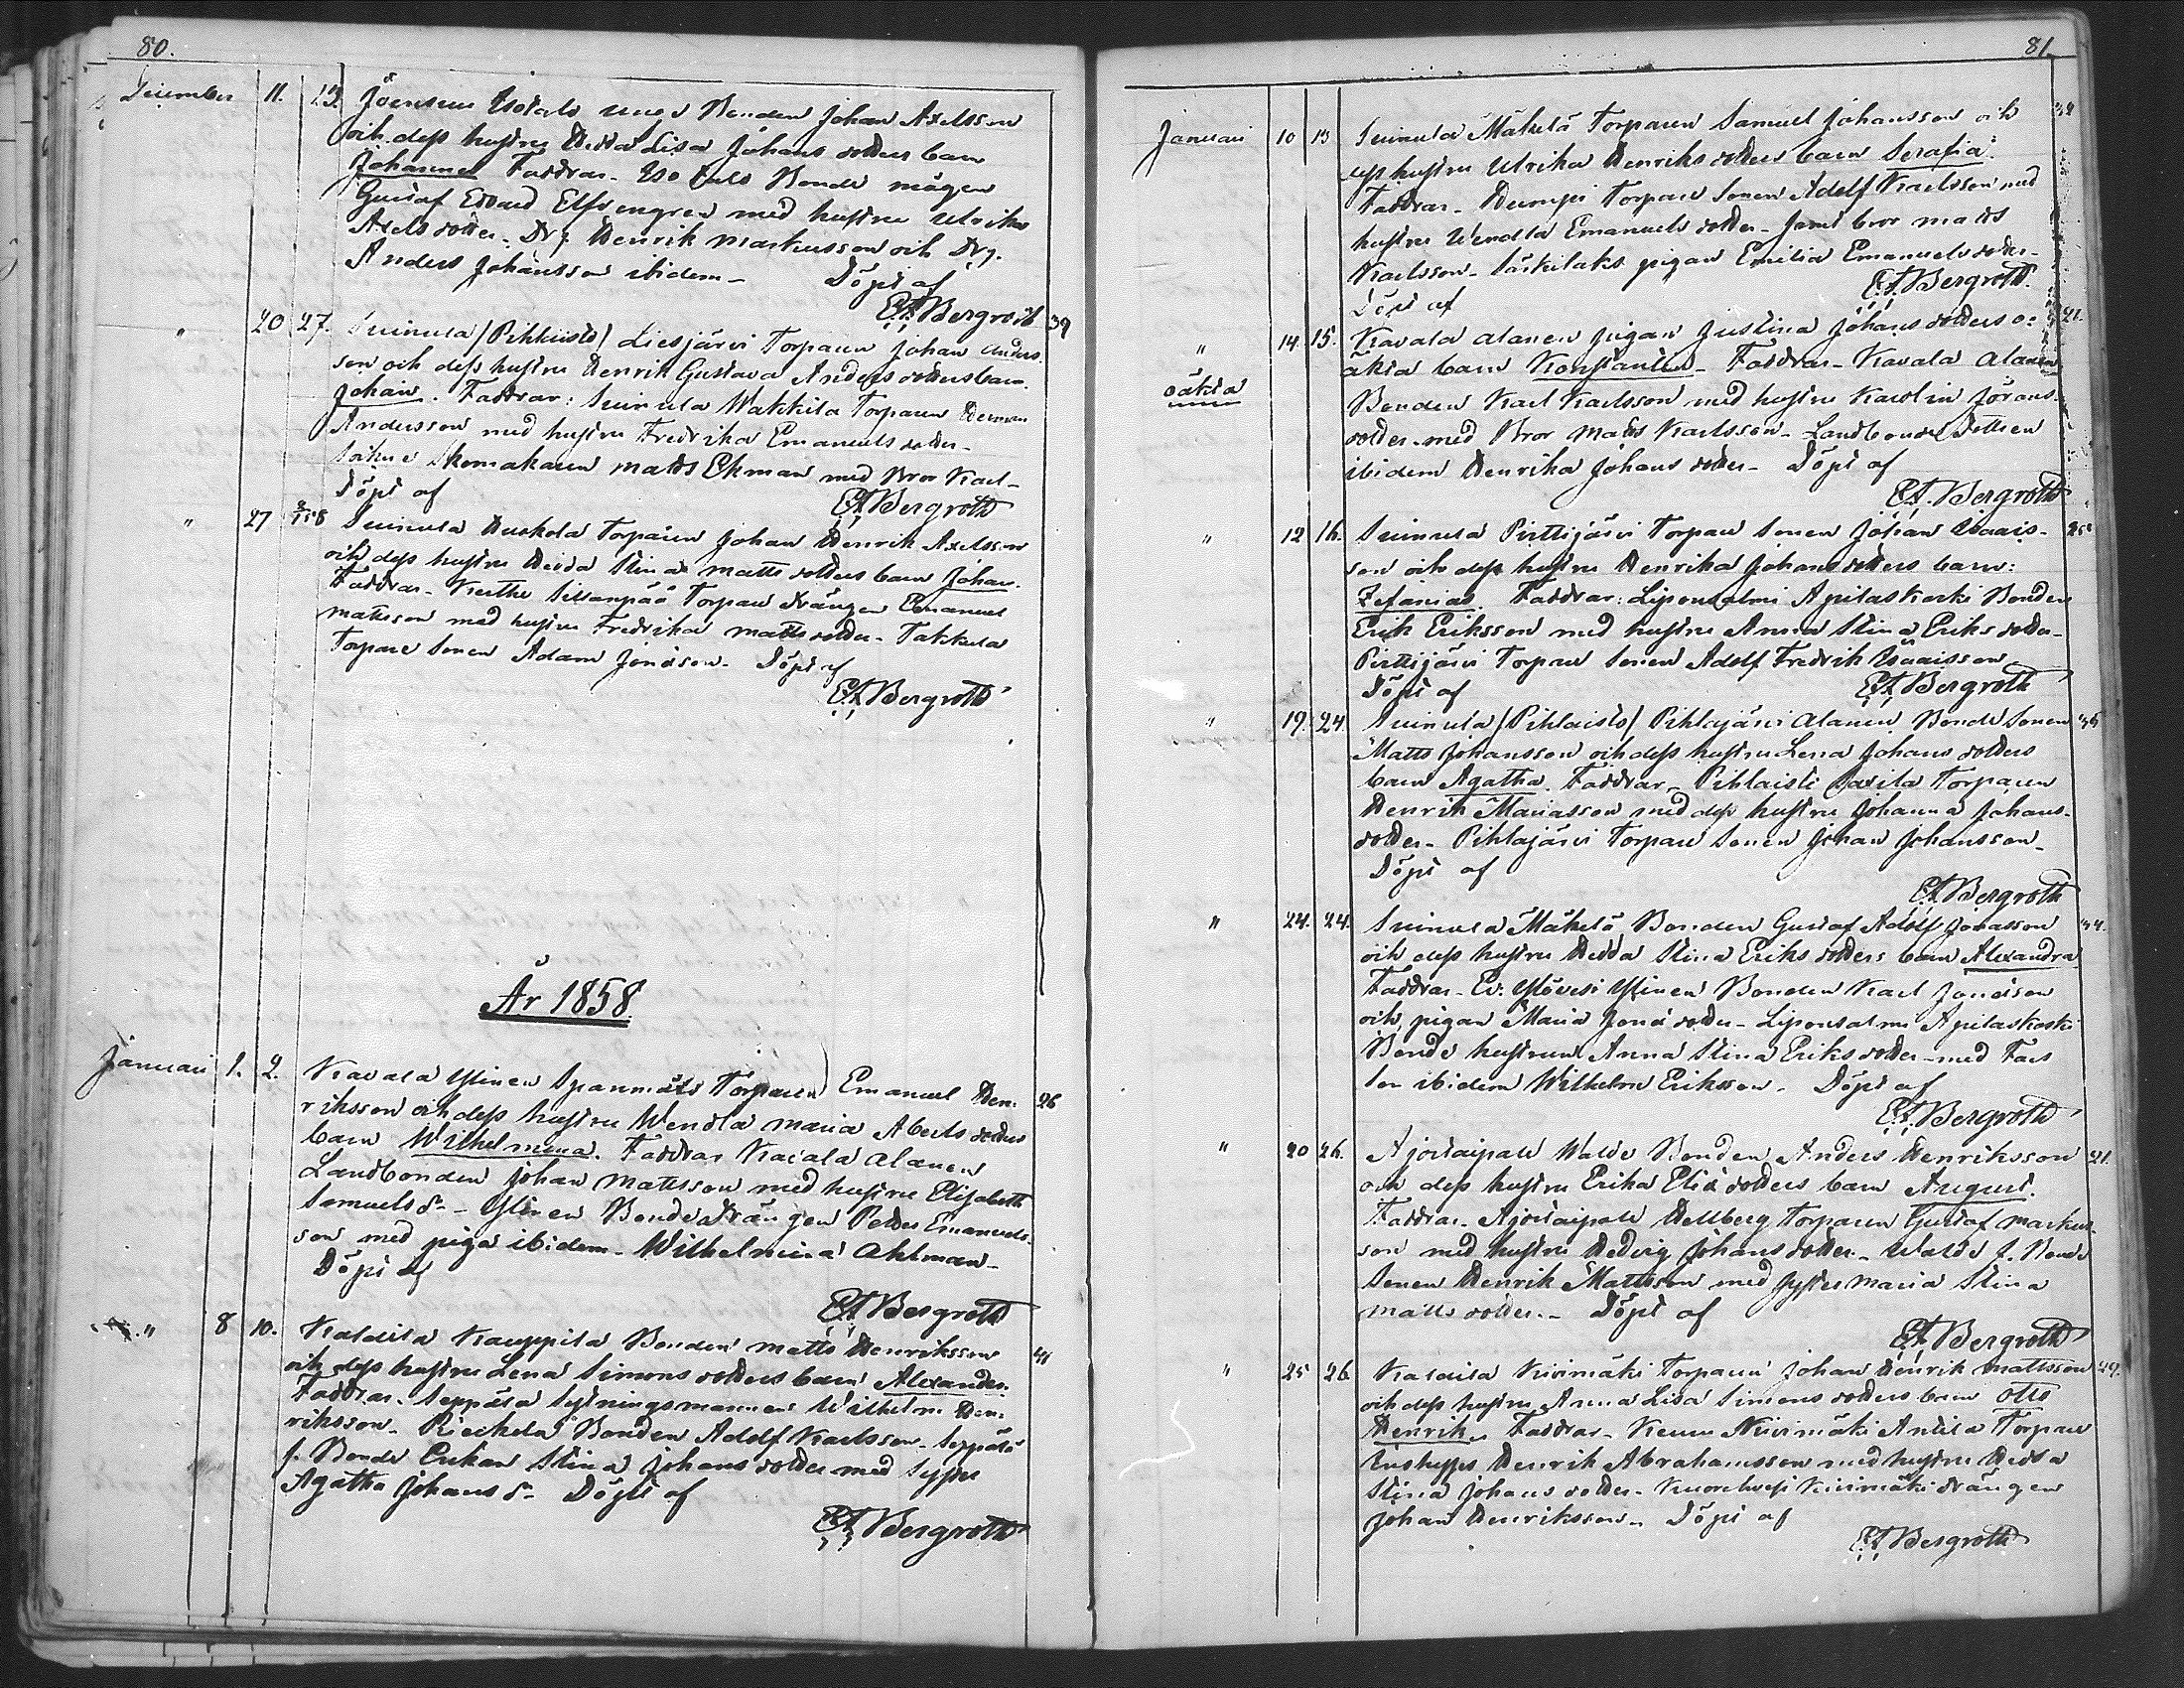 80.
December 11. 23. Joensuu Isotalo unga Bonden Johan Axelsson
och dess hustru Hedda Lisa Johans dotters barn
Johannes Faddrar. Isotalo Bonde mågen
Gustaf Edvard Elfvengren med hustru Ulrika
Axels dotter. Drg. Henrik Markusson och Drg.
Anders Johansson ibidem – Döpt af
E. A. Bergroth
" 20 27. Suinula /Pihlaisto/ Liesjärvi Torparen Johan Anders- 39
son och dess hustru Henrik Gustava Anders dotters barn
Johan. Faddrar: Suinula Wakkila Torparen Herman
Andersson med hustru Fredrika Emanuels dotter –
Skomakaren Matts Ekman med Bror Karl –
Döpt af
E. A. Bergroth
" 27 58 Suinula Torparen Johan Henrik Axelsson
och dess hustru Hedda Stina Matts dotters barn Johan.
Faddrar – Sillanpää Torpare drängen Emanuel
Mattsson med hustru Fredrika Matts dotter – Takkula
Torpare Sonen Adam Jonasson – Döpt af
E. A. Bergroth
År 1858
Januari 1. 2. Kavala Ylinen Torparen Emanuel Hen- 26
riksson och dess hustru Wendla Maria Aberts dotters
barn Wilhelmina. Faddrar Kavala Alanen
Landbonden Johan Mattsson med hustru Elisabeth
Samuels dr – Ylinen Bonde drängen Petter Emanuels-
son med piga ibidem – Wilhelmina Ahlman –
Döpt af
E. A. Bergroth
" 8 10. Kaldila Kauppila Bonden Matts Henriksson 41
och dess hustru Lena Simons dotters barn Alexander.
Faddrar. Seppälä Sytningsmannen Wilhelm Hen-
riksson – Bonden Adolf Karlsson – Seppälä
f. Bonde Enkan Stina Johans dotter med Syster
Agatha Johans dr – Döpt af
E. A. Bergroth
81.
Januari 10 13 Suinula Mäkelä Torparen Samuel Johansson och
dess hustru Ulrika Henriks dotters barn Serafia.
Faddrar – Torpare Sonen Adolf Karlsson med
hustru Wendla Emanuels dotter – samt bror Matts
Karlsson – Särkilaks pigan Emilia Emanuels dotter –
Döpt af
E. A. Bergroth.
" 14. 15. Kavala Alanen pigan Justina Johans dotters o: 21.
oäkta äkta barn Konstantin – Faddrar – Kavala Alanen
Bonden Karl Karlsson med hustru Karolin Jörans
dotter – med Bror Matts Karlsson – Landbonde dottren
ibidem Henrika Johans dotter – Döpt af
E. A. Bergroth
" 12 16. Suinula Pirttijärvi Torpare Sonen Johan Isaacs-
son och dess hustru Henrika Johans dotters barn:
Zefanias. Faddrar: Liponsalmi Apilaskoski Bonden
Erik Eriksson med hustru Anna Stina Eriks dotter –
Pirttijärvi Torpare Sonen Adolf Fredrik Isaacsson
Döpt af E. A. Bergroth
" 19. 24. Suinula /Pihlaisto/ Pihlajärvi Alanen Bonde Sonen
Matts Johansson och dess hustru Lena Johans dotters
barn Agatha. Faddrar – Pihlaisto Torparen
Henrik Mariasson med dess hustru Johanna Johans-
dotter – Pihlajärvi Torpare Sonen Johan Johansson –
Döpt af
E. A. Bergroth
" 24. 24. Suinula Mäkelä Bonden Gustaf Adolf Jonasson
och dess hustru Hedda Stina Eriks dotters barn Alexandra
Faddrar – Ylinen Bonden Karl Jonasson
och pigan Maria Jonas dotter – Liponsalmi Apilaskoski
Bonde hustrun Anna Stina Eriks dotter – med Fars
Son ibidem Wilhelm Eriksson – Döpt af
E. A. Bergroth
" 20 26. Ajostaipale Walde Bonden Anders Henriksson 21.
och dess hustru Erika Elias dotters barn August.
Faddrar – Ajostaipale Hellberg Torparen Gustaf Markus-
son med hustru Hedvig Johans dotter – Walde f. Bonde
Sonen Henrik Mattsson med Syster Maria Stina
Matts dotter – Döpt af
E. A. Bergroth
" 25 26 Kaldila Kivimäki Torparen Johan Henrik Mattsson 49.
och dess hustru Anna Lisa Simons dotters barn Otto
Henrik. Faddrar – Kivimäki Anttila Torpare
Henrik Abrahamsson med hustru Hedda
Stina Johans dotter – Kuorehvesi Kivimäki drängen
Johan Henriksson – Döpt af
E. A. Bergroth